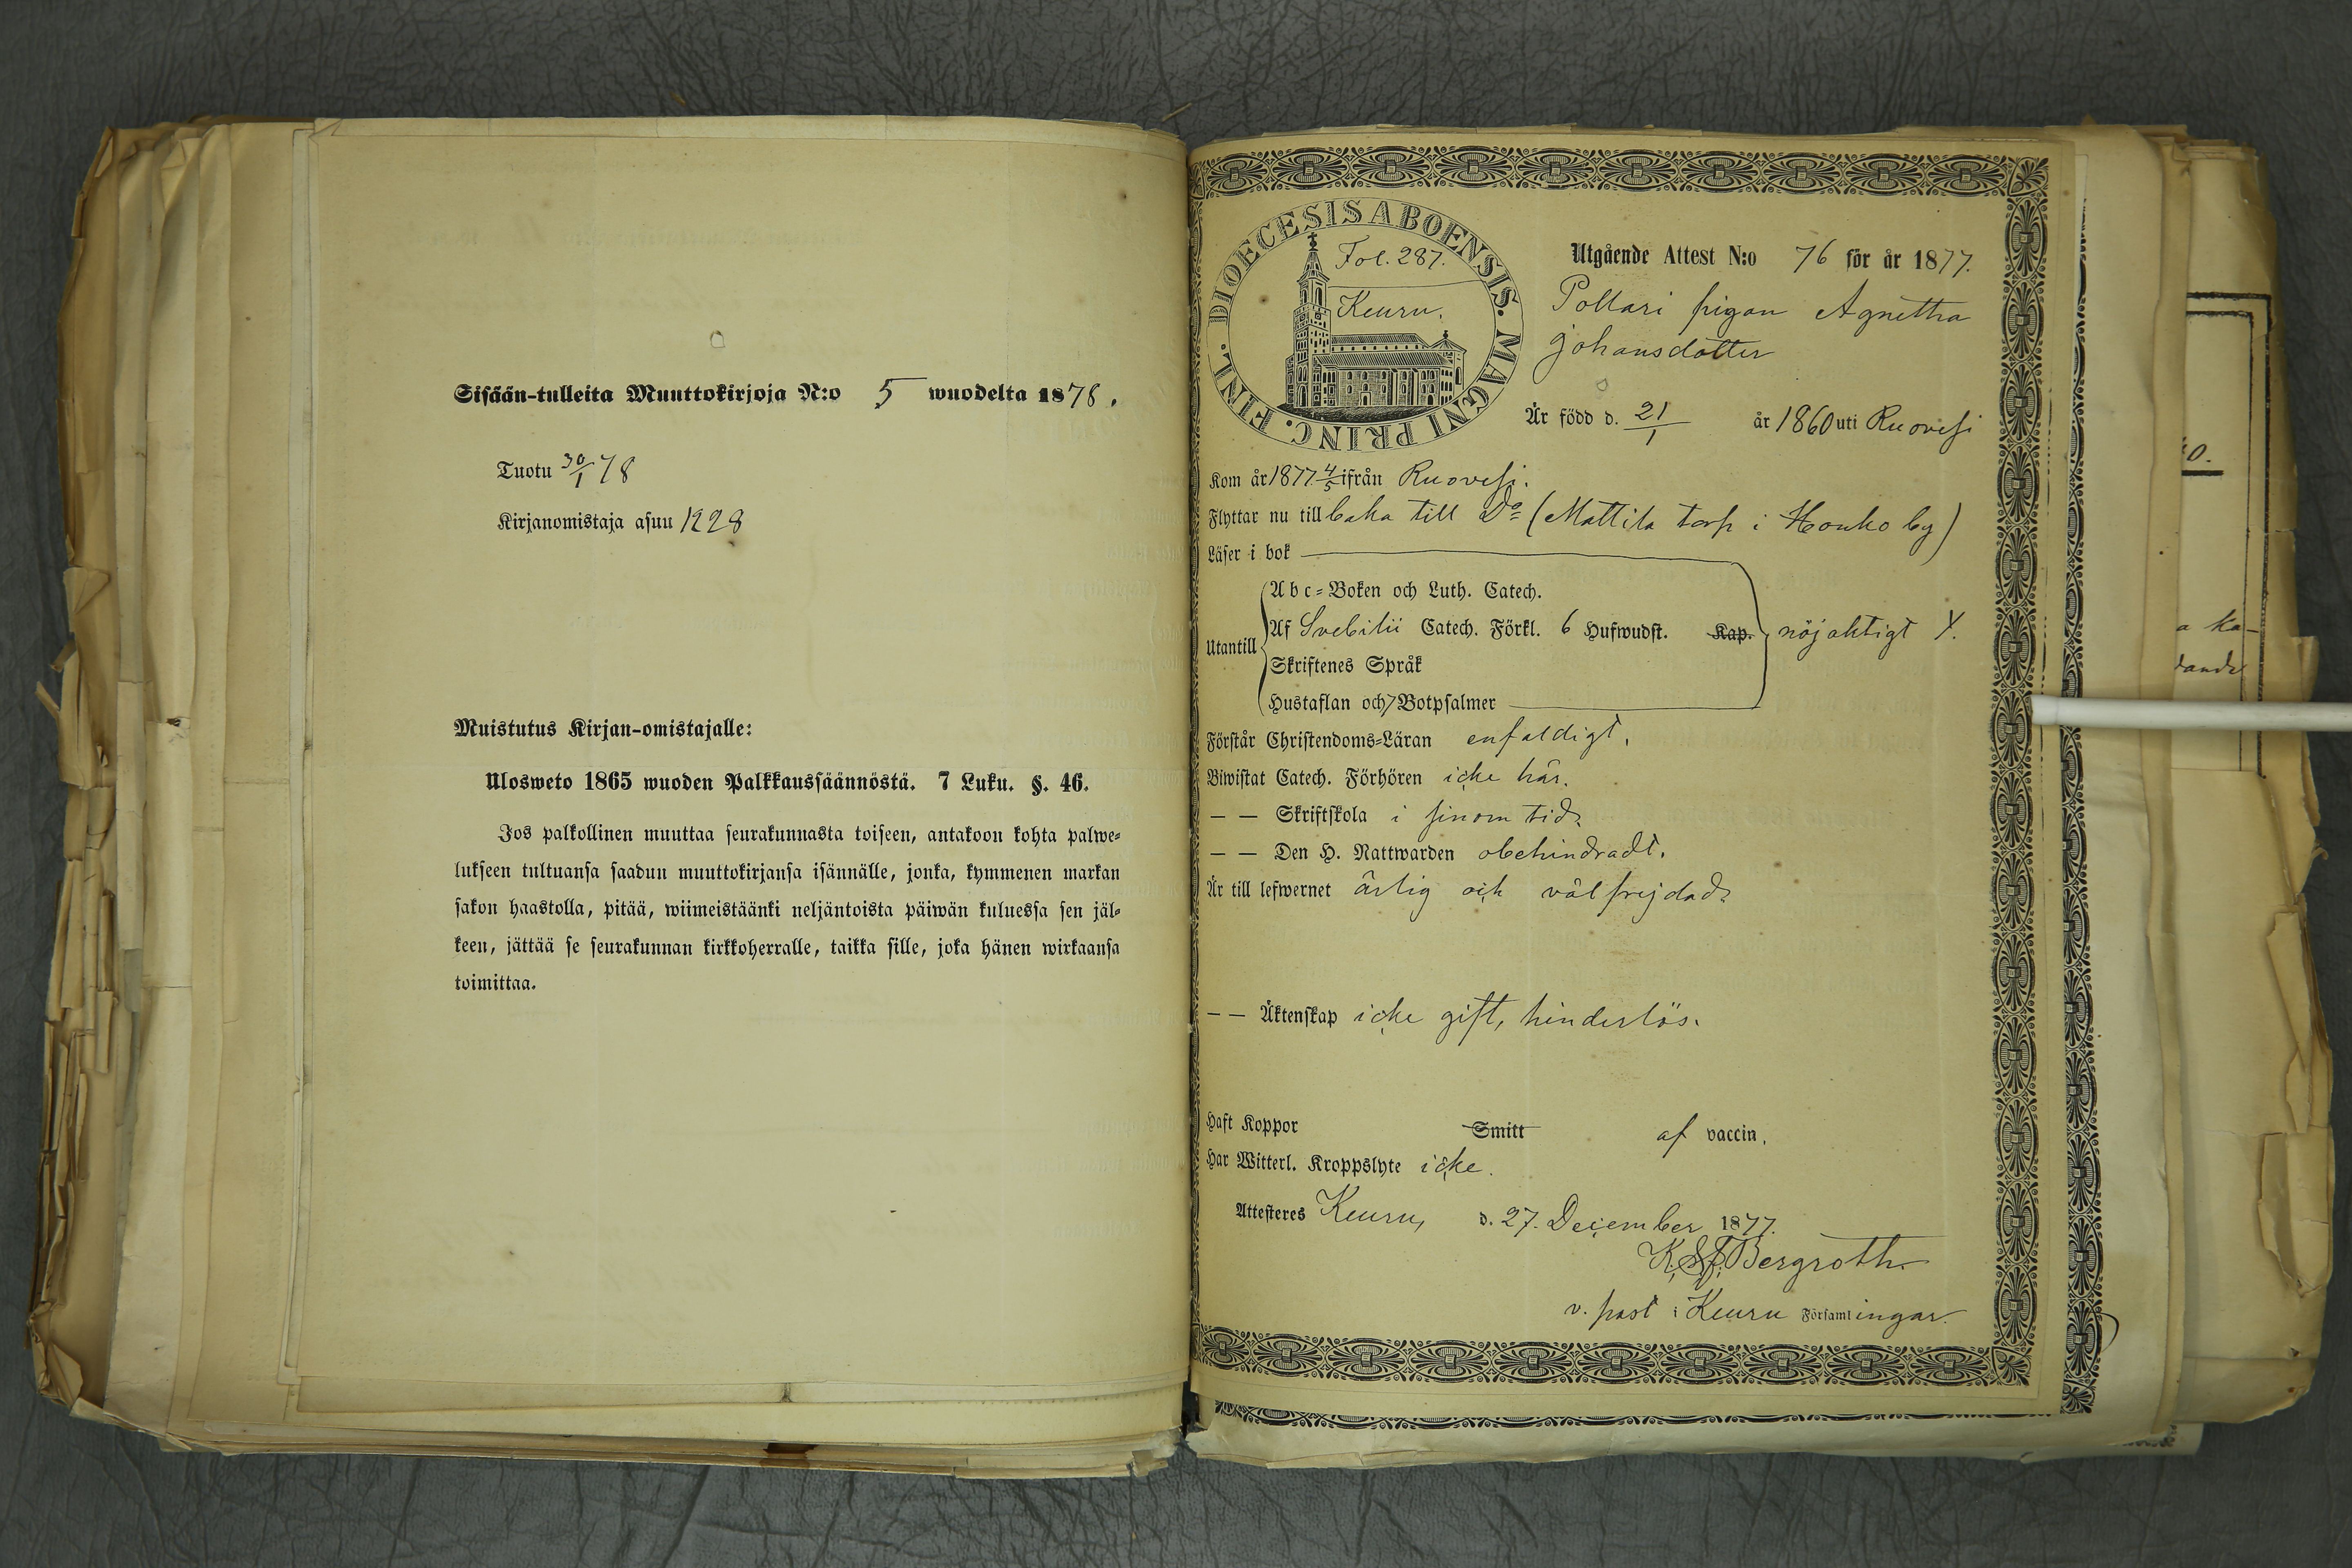 Sisään-tulleita Muuttokirjoja N:o 5 wuodelta 1878.
Tuotu 30/1 78
Kirjanomistaja asuu 1228
Muistutus Kirjan-omistajalle:
Ulosweto 1865 wuoden Palkkaussäännöstä. 7 Luku. §. 46.
Jos palkollinen muuttaa seurakunnasta toiseen, antakoon kohta palwe-
lukseen tultuansa saadun muuttokirjansa isännälle, jonka, kymmenen markan
sakon haastolla, pitää, wiimeistäänki neljäntoista päiwän kuluessa sen jäl-
keen, jättää se seurakunnan kirkkoherralle, taikka sille, joka hänen wirkaansa
toimittaa.
DIOECESIS ABOENSIS. MAGNI PRINC. FINL.
Fol. 287.
Keuru.
Utgående Attest N:o 76 för år 1877.
Pollari pigan Agnetha
Johansdotter
Är född d. 21/1 år 1860 uti Ruovesi
Kom år 1877 4/5 ifrån Ruovesi.
Flyttar nu till baka till Do (Mattila torp i Honko by)
Läser i bok
Utantill
Abc-Boken och Luth. Catech.
Af Svebilii Catech. Förkl. 6 Hufwudst. Kap.
Skriftenes Språk
Hustaflan och 7 Botpsalmer
nöjaktigt
Förstår Christendoms-Läran enfaldigt.
Biwistat Catech. Förhören icke här.
— — Skriftskola i sinom tid.
— — Den H. Nattwarden obehindradt.
Är till lefwernet ärlig och välfrejdad.
— — Äktenskap icke gift, hinderlös.
Haft Koppor Smitt af vaccin.
Har Witterl. Kroppslyte icke.
Attesteres Keuru, d. 27. December 1877.
Bergroth.
v. past i Keuru Församlingar.
0.
a ka-
dande